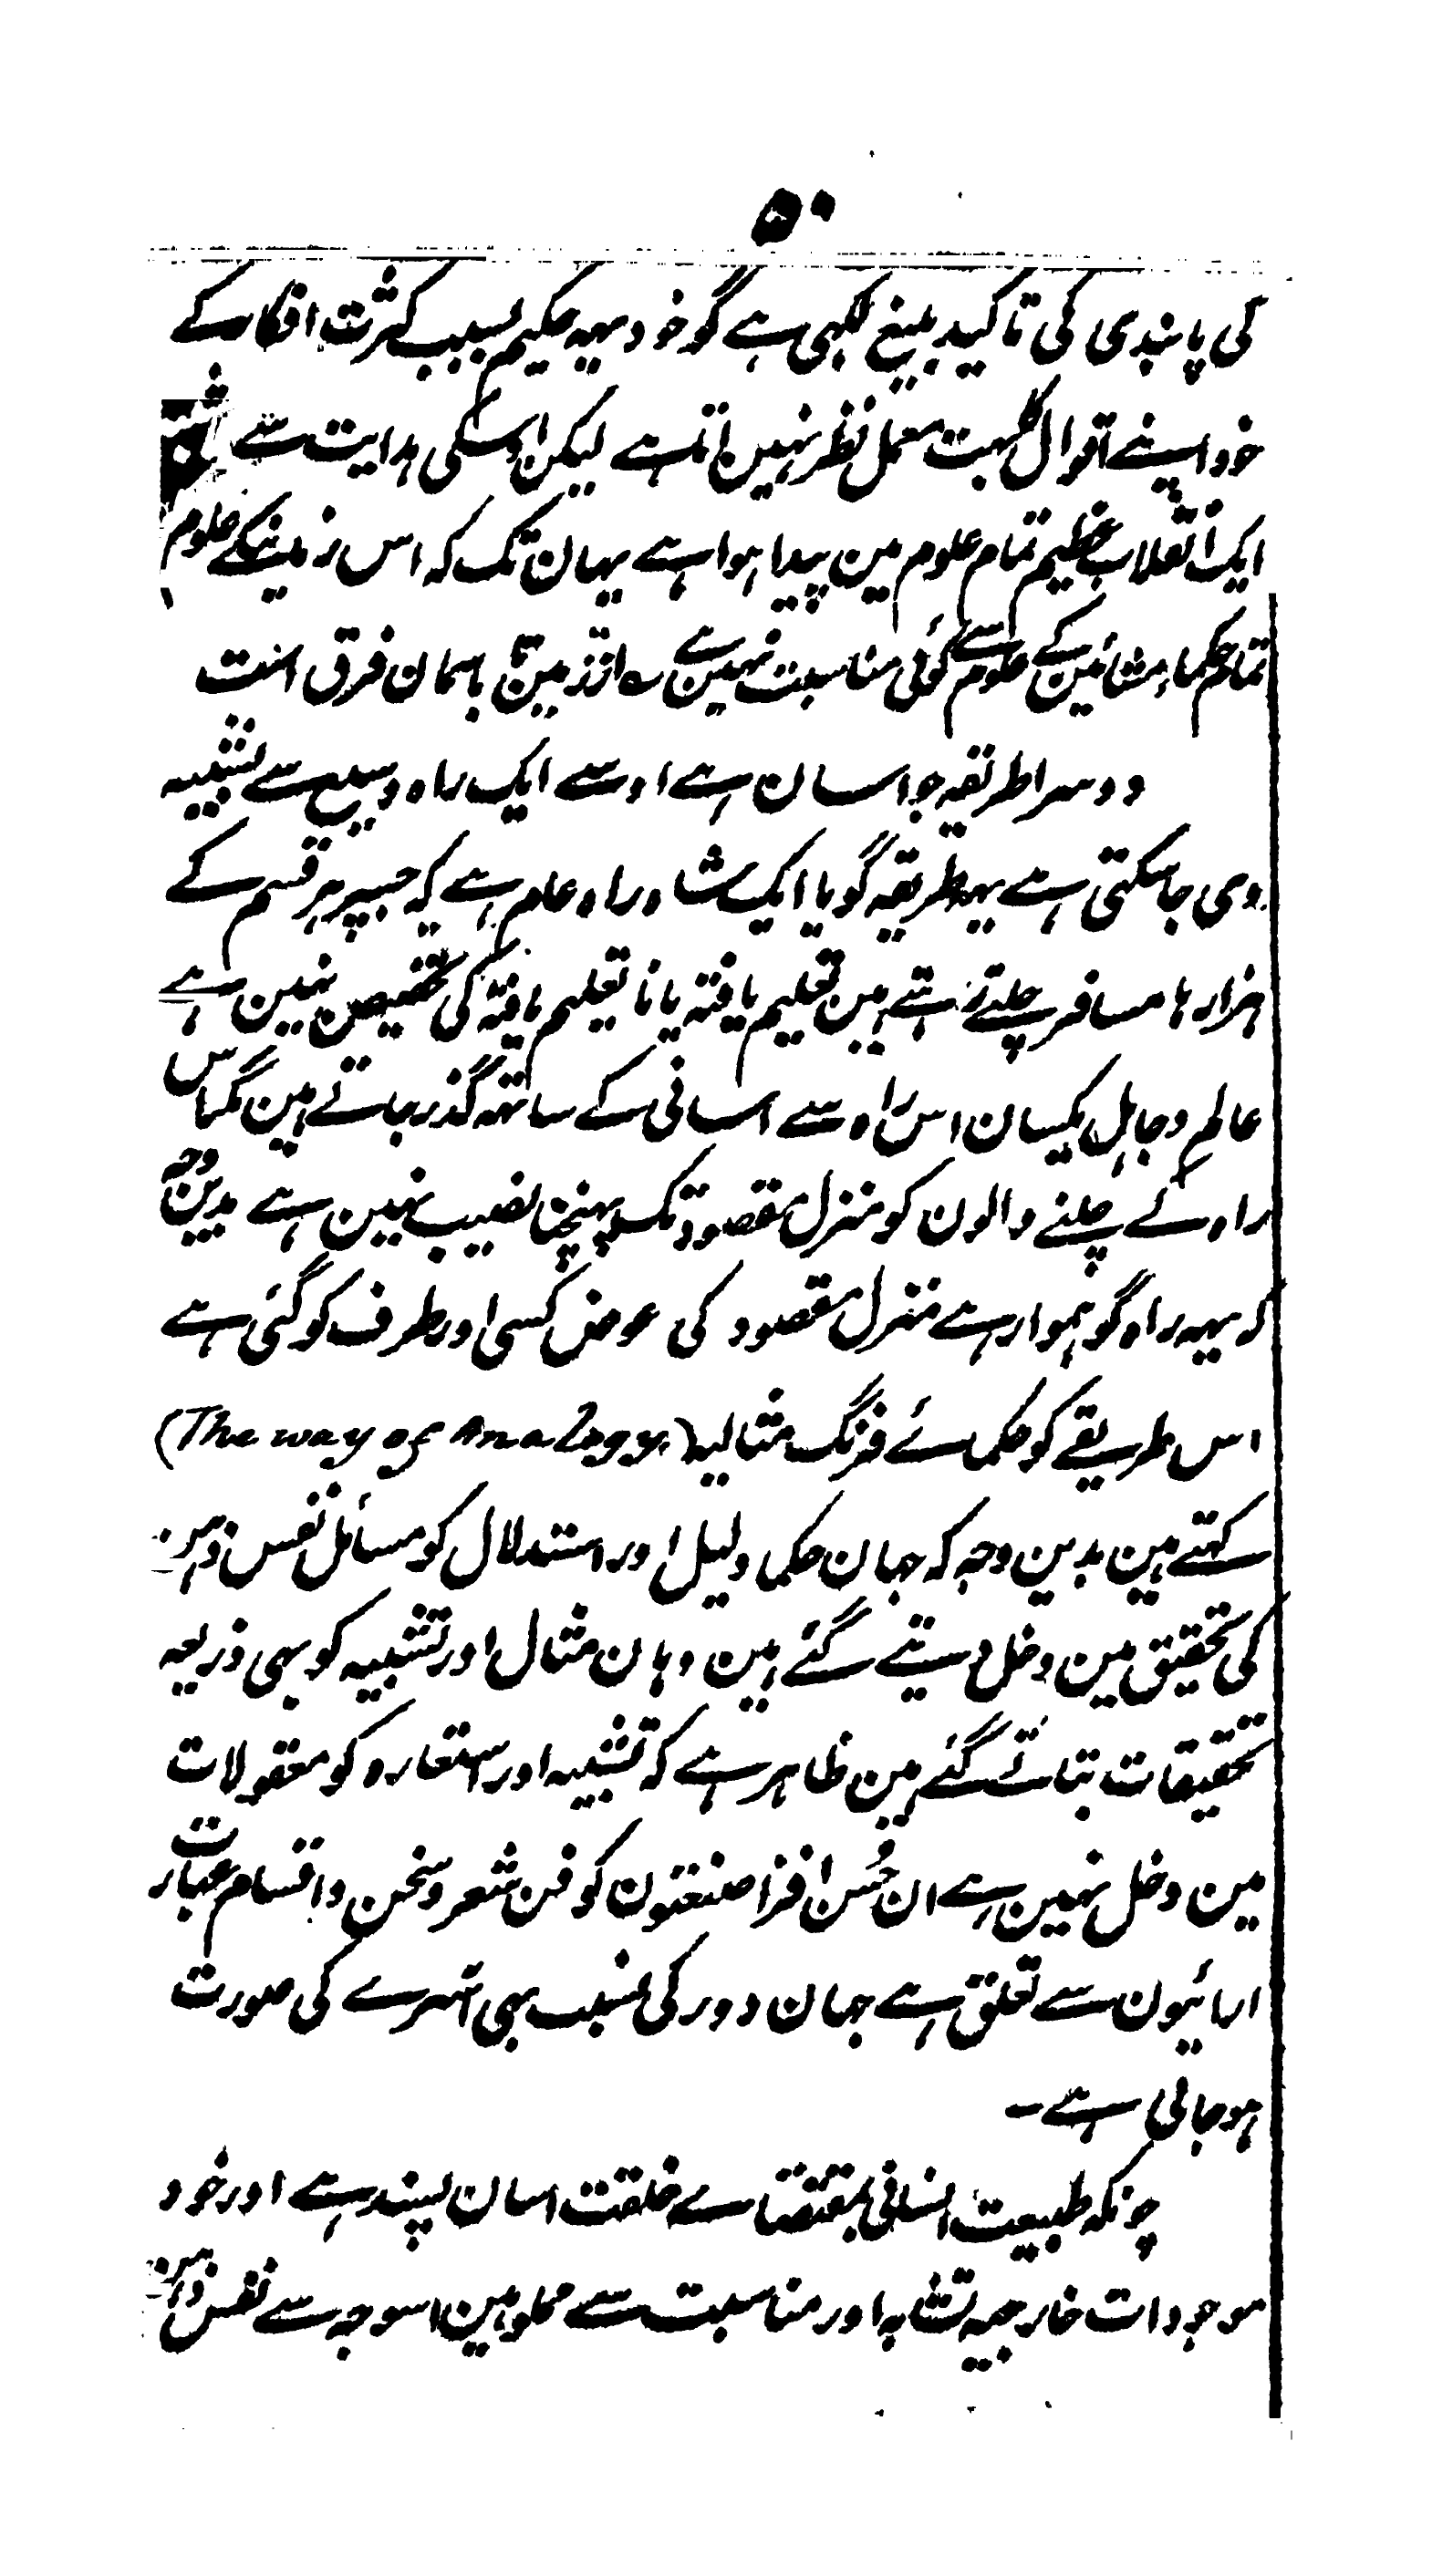 ۵۰
کی پابندی کی تاکید بلیغ لکہی ہے گو خود یہہ حکیم بسبب کثرت افکار کے
خود اپنے اقوال کا بہت معمل نظر نہین اتا ہے لیکن اوسکی ہدایت سے
ایک انقلاب عظیم تمام علوم مین پیدا ہوا ہے یہان تک کہ اس زمانیکے علوم
تمام حکماء مشائین کے علوم سے کوئی مناسبت نہین ہے ؎ از زمین تا باسمان فرق است
دوسرا طریقہ جو اسان ہے اوسے ایک راہ وسیع سے تشبیہ
دی جا سکتی ہے یہہ طریقہ گویا ایک شاہ راہ عام ہے کہ جسپر ہر قسم کے
ہزار ہا مسافر چلتے رہتے ہین تعلیم یافتہ یا نا تعلیم یافتہ کی تخصیص نہین ہے
عالم و جاہل یکسان اس راہ سے اسانی کے ساتہہ گذر جاتے ہین مگر اس
راہ کے چلنے والون کو منزل مقصود تک پہنچنا نصیب نہین ہے بدین وجہ
کہ یہہ راہ گو ہموار ہے منزل مقصود کی عوض کسی اور طرف کو گئی ہے
اس طریقے کو حکمائے فرنگ مثالیہ (The way of Analogy.)
کہتے ہین بدین وجہ کہ جہان حکما دلیل اور استدلال کو مسائل نفس ذہن
کی تحقیق مین دخل دیتے گئے ہین وہان مثال اور تشبیہ کو بہی ذریعہ
تحقیقات بتاتے گئے ہین ظاہر ہے کہ تشبیہ اور استعارہ کو معقولات
مین دخل نہین ہے ان حُسن افزا صنعتون کو فن شعر و سخن و اقسام عبارت
ارائیون سے تعلق ہے جہان دور کی نسبت بہی تہرے کی صورت
ہو جاتی ہے ۔
چونکہ طبیعت انسانی بمقتضائے خلقت اسان پسند ہے اور خود
موجودات خارجیہ تشابہ اور مناسبت سے مملو ہین اسوجہ سے نفس ذہن